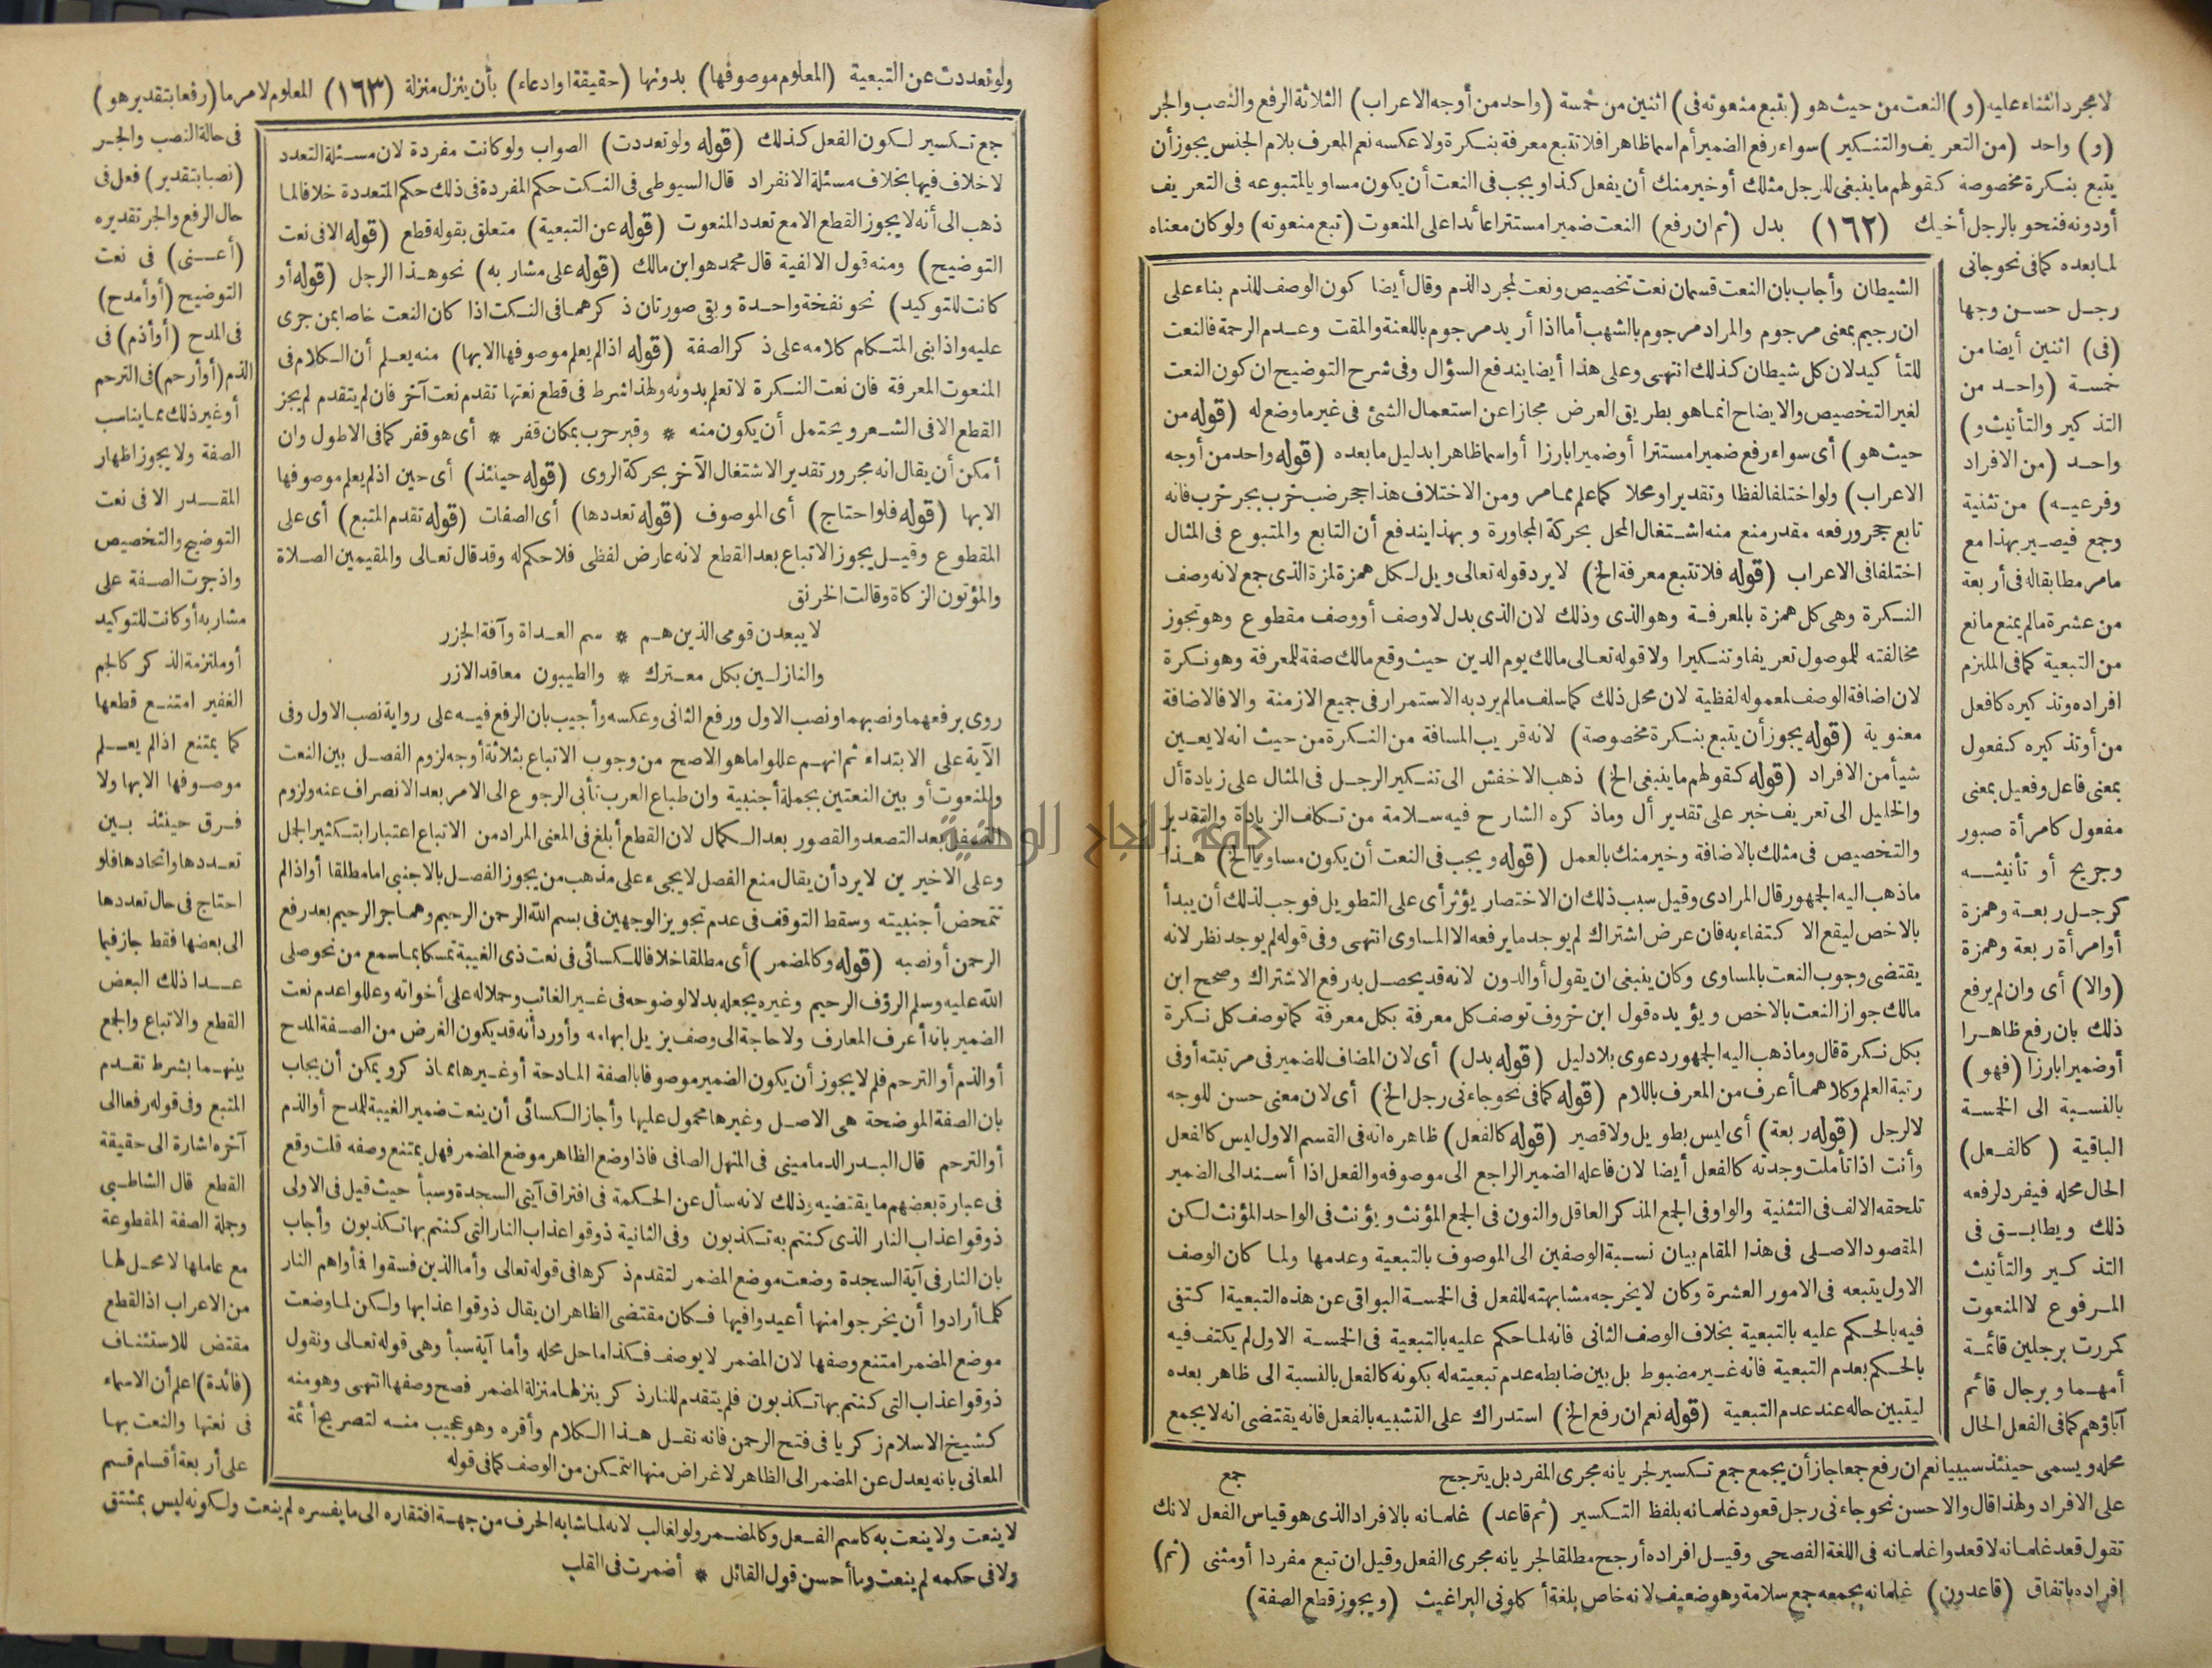 لا مجرد الثناء عليه (و) النعت من حيث هو (يتبع منعوته في) اثنين من خمسة (واحد من أوجه الاعراب) الثلاثة الرفع والنصب والجر
(و) واحد (من التعريف والتنكير) سواء رفع الضمير أم اسما ظاهرا فلا تتبع معرفة بنكرة ولا عكسه نعم المعرف بلام الجنس يجوز أن
يتبع بنكرة مخصوصة كقولهم ما ينبغى للرجل مثلك أو خير منك أن يفعل كذا ويجب فى النعت أن يكون مساويا لمتبوعه فى التعريف
أو دونه فنحو بالرجل أخيك (١٦٢) بدل (ثم ان رفع) النعت ضميرا مستترا عائدا على المنعوت (تبع منعوته) ولو كان معناه
لما بعده كما فى نحو جانى
رجل حسن وجها
(فى) اثنين أيضا من
خمسة (واحد من
التذكير والتأنيث و)
واحد (من الافراد
وفرعيه) من تثنية
وجمع فيصير بهذا مع
ما مر مطابقا له فى أربعة
من عشرة ما لم يمنع مانع
من التبعية كما فى الملزم
افراده وتذكيره كافعل
من أو تذكيره كفعول
بمعنى فاعل وفعيل بمعنى
مفعول كامرأة صبور
وجريح أو تأنيثه
كرجل ربعة وهمزة
أو امرأة ربعة وهمزة
(والا) أى وان لم يرفع
ذلك بان رفع ظاهرا
أو ضميرا بارزا (فهو)
بالنسبة الى الخمسة
الباقية (كالفعل)
الحال محله فيفرد لرفعه
ذلك ويطابق فى
التذكير والتأنيث
المرفوع لا المنعوت
كمررت برجلين قائمة
أمهما وبرجال قائم
آباؤهم كما فى الفعل الحال
الشيطان وأجاب بان النعت قسمان نعت تخصيص ونعت لمجرد الذم وقال أيضا كون الوصف للذم بناء على
ان رجيم بمعنى مرجوم والمراد مرجوم بالشهب أما اذا أريد مرجوم باللعنة والمقت وعدم الرحمة فالنعت
للتأكيد لان كل شيطان كذلك انتهى وعلى هذا أيضا يندفع السؤال وفى شرح التوضيح ان كون النعت
لغير التخصيص والايضاح انما هو بطريق العرض مجازا عن استعمال الشئ فى غير ما وضع له (قوله من
حيث هو) أى سواء رفع ضميرا مستترا أو ضميرا بارزا أو اسما ظاهرا بدليل ما بعده (قوله واحد من أوجه
الاعراب) ولو اختلفا لفظا وتقديرا ومحلا كما علم مما مر ومن الاختلاف هذا جحر ضب خرب بجر خرب فانه
تابع جحر ورفعه مقدر منع منه اشتغال المحل بحركة المجاورة وبهذا يندفع أن التابع والمتبوع فى المثال
اختلفا فى الاعراب (قوله فلا تتبع معرفة الخ) لا يرد قوله تعالى ويل لكل همزة لمزة الذى جمع لانه وصف
النكرة وهى كل همزة بالمعرفة وهو الذى وذلك لان الذى بدل لا وصف أو وصف مقطوع وهو تجوز
مخالفته للموصول تعريفا وتنكيرا ولا قوله تعالى مالك يوم الدين حيث وقع مالك صفة للمعرفة وهو نكرة
لان اضافة الوصف لمعموله لفظية لان محل ذلك كما سلف ما لم يرد به الاستمرار فى جميع الازمنة والا فالاضافة
معنوية (قوله يجوز أن يتبع بنكرة مخصوصة) لانه قريب المسافة من النكرة من حيث انه لا يعين
شيأ من الافراد (قوله كقولهم ما ينبغى الخ) ذهب الاخفش الى تنكير الرجل فى المثال على زيادة أل
والخليل الى تعريف خبر على تقدير أل وماذكره الشارح فيه سلامة من تكلف الزيادة والتقدير
والتخصيص فى مثلك بالاضافة وخير منك بالعمل (قوله ويجب فى النعت أن يكون مساويا الخ) هذا
ما ذهب اليه الجمهور قال المرادى وقيل سبب ذلك ان الاختصار يؤثر أى على التطويل فوجب لذلك أن يبدأ
بالاخص ليقع الاكتفاء به فان عرض اشتراك لم يوجد ما يرفعه الا المساوى انتهى وفى قوله لم يوجد نظر لانه
يقتضى وجوب النعت بالمساوى وكان ينبغى ان يقول أو الدون لانه قد يحصل به رفع الاشتراك وصحح ابن
مالك جواز النعت بالاخص ويؤيده قول ابن خروف توصف كل معرفة بكل معرفة كما توصف كل نكرة
بكل نكرة قال وما ذهب اليه الجمهور دعوى بلا دليل (قوله بدل) أى لان المضاف للضمير فى مرتبته أو فى
رتبة العلم وكلاهما أعرف من المعرف باللام (قوله كما فى نحو جاءنى رجل الخ) أى لان معنى حسن للوجه
لا لرجل (قوله ربعة) أى ليس بطويل ولا قصير (قوله كالفعل) ظاهره انه فى القسم الاول ليس كالفعل
وأنت اذا تأملت وجدته كالفعل أيضا لان فاعله الضمير الراجع الى موصوفه والفعل اذا أسند الى الضمير
تلحقه الالف فى التثنية والواو فى الجمع المذكر العاقل والنون فى الجمع المؤنث ويؤنث فى الواحد المؤنث لكن
المقصود الاصلى فى هذا المقام بيان نسبة الوصفين الى الموصوف بالتبعية وعدمها ولما كان الوصف
الاول يتبعه فى الامور العشرة وكان لا يخرجه مشابهته للفعل فى الخمسة البواقى عن هذه التبعية اكتفى
فيه بالحكم عليه بالتبعية بخلاف الوصف الثانى فانه لما حكم عليه بالتبعية فى الخمسة الاول لم يكتف فيه
بالحكم بعدم التبعية فانه غير مضبوط بل بين ضابطه عدم تبعيته له بكونه كالفعل بالنسبة الى ظاهر بعده
ليتبين حاله عند عدم التبعية (قوله نعم ان رفع الخ) استدراك على التشبيه بالفعل فانه يقتضى انه لا يجمع
محله ويسمى حينئذ سببيا نعم ان رفع جمعا جاز أن يجمع جمع تكسير لجريانه مجرى المفرد بل يترجح
جمع
على الافراد ولهذا قال والاحسن نحو جاءنى رجل قعود غلمانه بلفظ التكسير (ثم قاعد) غلمانه بالافراد الذى هو قياس الفعل لانك
تقول قعد غلمانه لا قعدوا غلمانه فى اللغة الفصحى وقيل افراده أرجح مطلقا لجريانه مجرى الفعل وقيل ان تبع مفردا أو مثنى (ثم)
افراده باتفاق (قاعدون) غلمانه بجمعه جمع سلامة وهو ضعيف لانه خاص بلغة أكلونى البراغيث (ويجوز قطع الصفة)
ولو تعددت عن التبعية (المعلوم موصوفها) بدونها (حقيقة او ادعاء) بأن ينزل منزلة (١٦٣) المعلوم لامر ما (رفعا بتقدير هو)
فى حالة النصب والجر
(نصبا بتقدير) فعل فى
حال الرفع والجر تقديره
(أعنى) فى نعت
التوضيح (أو أمدح)
فى المدح (أو أذم) فى
الذم (أو أرحم) فى الترحم
أو غير ذلك مما يناسب
الصفة ولا يجوز اظهار
المقدر الا فى نعت
التوضيح والتخصيص
واذ جرت الصفة على
مشار به أو كانت للتوكيد
أو ملتزمة الذكر كالجم
الغفير امتنع قطعها
كما يمتنع اذ الم يعلم
موصوفها الا بها ولا
فرق حينئذ بين
تعددها واتحادها فلو
احتاج فى حال تعددها
الى بعضها فقط جاز فيما
عدا ذلك البعض
القطع والاتباع والجمع
بينهما بشرط تقدم
المتبع وفى قوله رفعا الى
آخره اشارة الى حقيقة
القطع قال الشاطبى
وجملة الصفة المقطوعة
مع عاملها لا محل لها
من الاعراب اذ القطع
مقتض للاستئناف
(فائدة) اعلم أن الاسماء
فى نعتها والنعت بها
على أربعة أقسام قسم
جمع تكسير لكون الفعل كذلك (قوله ولو تعددت) الصواب ولو كانت مفردة لان مسئلة التعدد
لا خلاف فيها بخلاف مسئلة الانفراد قال السيوطى فى النكت حكم المفردة فى ذلك حكم المتعددة خلافا لما
ذهب الى أنه لا يجوز القطع الا مع تعدد المنعوت (قوله عن التبعية) متعلق بقوله قطع (قوله الا فى نعت
التوضيح) ومنه قول الالفية قال محمد هو ابن مالك (قوله على مشار به) نحو هذا الرجل (قوله أو
كانت للتوكيد) نحو نفخة واحدة وبقى صورتان ذكرهما فى النكت اذا كان النعت خاصا بمن جرى
عليه واذا بنى المتكلم كلامه على ذكر الصفة (قوله اذا لم يعلم موصوفها الا بها) منه يعلم أن الكلام فى
المنعوت المعرفة فان نعت النكرة لا تعلم بدونه ولهذا شرط فى قطع نعتها تقدم نعت آخر فان لم يتقدم لم يجز
القطع الا فى الشعر ويحتمل أن يكون منه * وقبر حرب بمكان قفر * أى هو قفر كما فى الاطول وان
أمكن أن يقال انه مجرور تقدير الاشتغال الآخر بحركة الروى (قوله حينئذ) أى حين اذ لم يعلم موصوفها
الا بها (قوله فلو احتاج) أى الموصوف (قوله تعددها) أى الصفات (قوله تقدم المتبع) أى على
المقطوع وقيل يجوز الاتباع بعد القطع لانه عارض لفظى فلا حكم له وقد قال تعالى والمقيمين الصلاة
والمؤتون الزكاة وقالت الخرنق
لا يبعدن قومى الذين هم * سم العداة وآفة الجزر
والنازلين بكل معترك * والطيبون معاقد الازر
روى برفعهما ونصبهما ونصب الاول ورفع الثانى وعكسه وأجيب بان الرفع فيه على رواية نصب الاول وفى
الآية على الابتداء ثم انهم عللوا ما هو الاصح من وجوب الاتباع بثلاثة أوجه لزوم الفصل بين النعت
والمنعوت أو بين النعتين بجملة أجنبية وان طباع العرب تأبى الرجوع الى الامر بعد الانصراف عنه ولزوم
التسفل بعد التصعد والقصور بعد الكمال لان القطع أبلغ فى المعنى المراد من الاتباع اعتبارا بتكثير الجمل
وعلى الاخيرين لا يرد أن يقال منع الفصل لا يجىء على مذهب من يجوز الفصل بالاجنبى اما مطلقا أو اذا لم
تتمحض أجنبيته وسقط التوقف فى عدم تجويز الوجهين فى بسم الله الرحمن الرحيم وهما جر الرحيم بعد رفع
الرحمن أو نصبه (قوله وكالمضمر) أى مطلقا خلافا للكسائى فى نعت ذى الغيبة تمسكا بما سمع من نحو صلى
الله عليه وسلم الرؤف الرحيم وغيره يجعله بدلا لوضوحه فى غير الغائب وحملا له على أخواته وعللوا عدم نعت
الضمير بانه أعرف المعارف ولا حاجة الى وصف يزيل ابهامه وأورد أنه قد يكون الغرض من الصفة المدح
أو الذم أو الترحم فلم لا يجوز أن يكون الضمير موصوفا بالصفة المادحة أو غيرها مما ذكر ويمكن أن يجاب
بان الصفة الموضحة هى الاصل وغيرها محمول عليها وأجاز الكسائى أن ينعت ضمير الغيبة للمدح أو الذم
أو الترحم قال البدر الدمامينى فى المنهل الصافى فاذا وضع الظاهر موضع المضمر فهل يمتنع وصفه قلت وقع
فى عبارة بعضهم ما يقتضيه وذلك لانه سأل عن الحكمة فى افتراق آيتى السجدة وسبأ حيث قيل فى الاولى
ذوقوا عذاب النار الذى كنتم به تكذبون وفى الثانية ذوقوا عذاب النار التى كنتم بها تكذبون وأجاب
بان النار فى آية السجدة وضعت موضع المضمر لتقدم ذكرها فى قوله تعالى وأما الذين فسقوا فمأواهم النار
كلما أرادوا أن يخرجوا منها أعيدوا فيها فكان مقتضى الظاهر ان يقال ذوقوا عذابها ولكن لما وضعت
موضع المضمر امتنع وصفها لان المضمر لا يوصف فكذا ما حل محله وأما آية سبأ وهى قوله تعالى ونقول
ذوقوا عذاب التى كنتم بها تكذبون فلم يتقدم للنار ذكر ينزلها منزلة المضمر فصح وصفها انتهى وهو منه
كشيخ الاسلام زكريا فى فتح الرحمن فانه نقل هذا الكلام وأقره وهو عجيب منه لتصريح أئمة
المعانى بانه يعدل عن المضمر الى الظاهر لاغراض منها التمكن من الوصف كما فى قوله
لا ينعت ولا ينعت به كاسم الفعل وكالمضمر ولو لغالب لانه لما شابه الحرف من جهة افتقاره الى ما يفسره لم ينعت ولكونه ليس بمشتق
ولا فى حكمه لم ينعت وبا أحسن قول القائل * أضمرت فى القلب
جامعة النجاح الوطنية